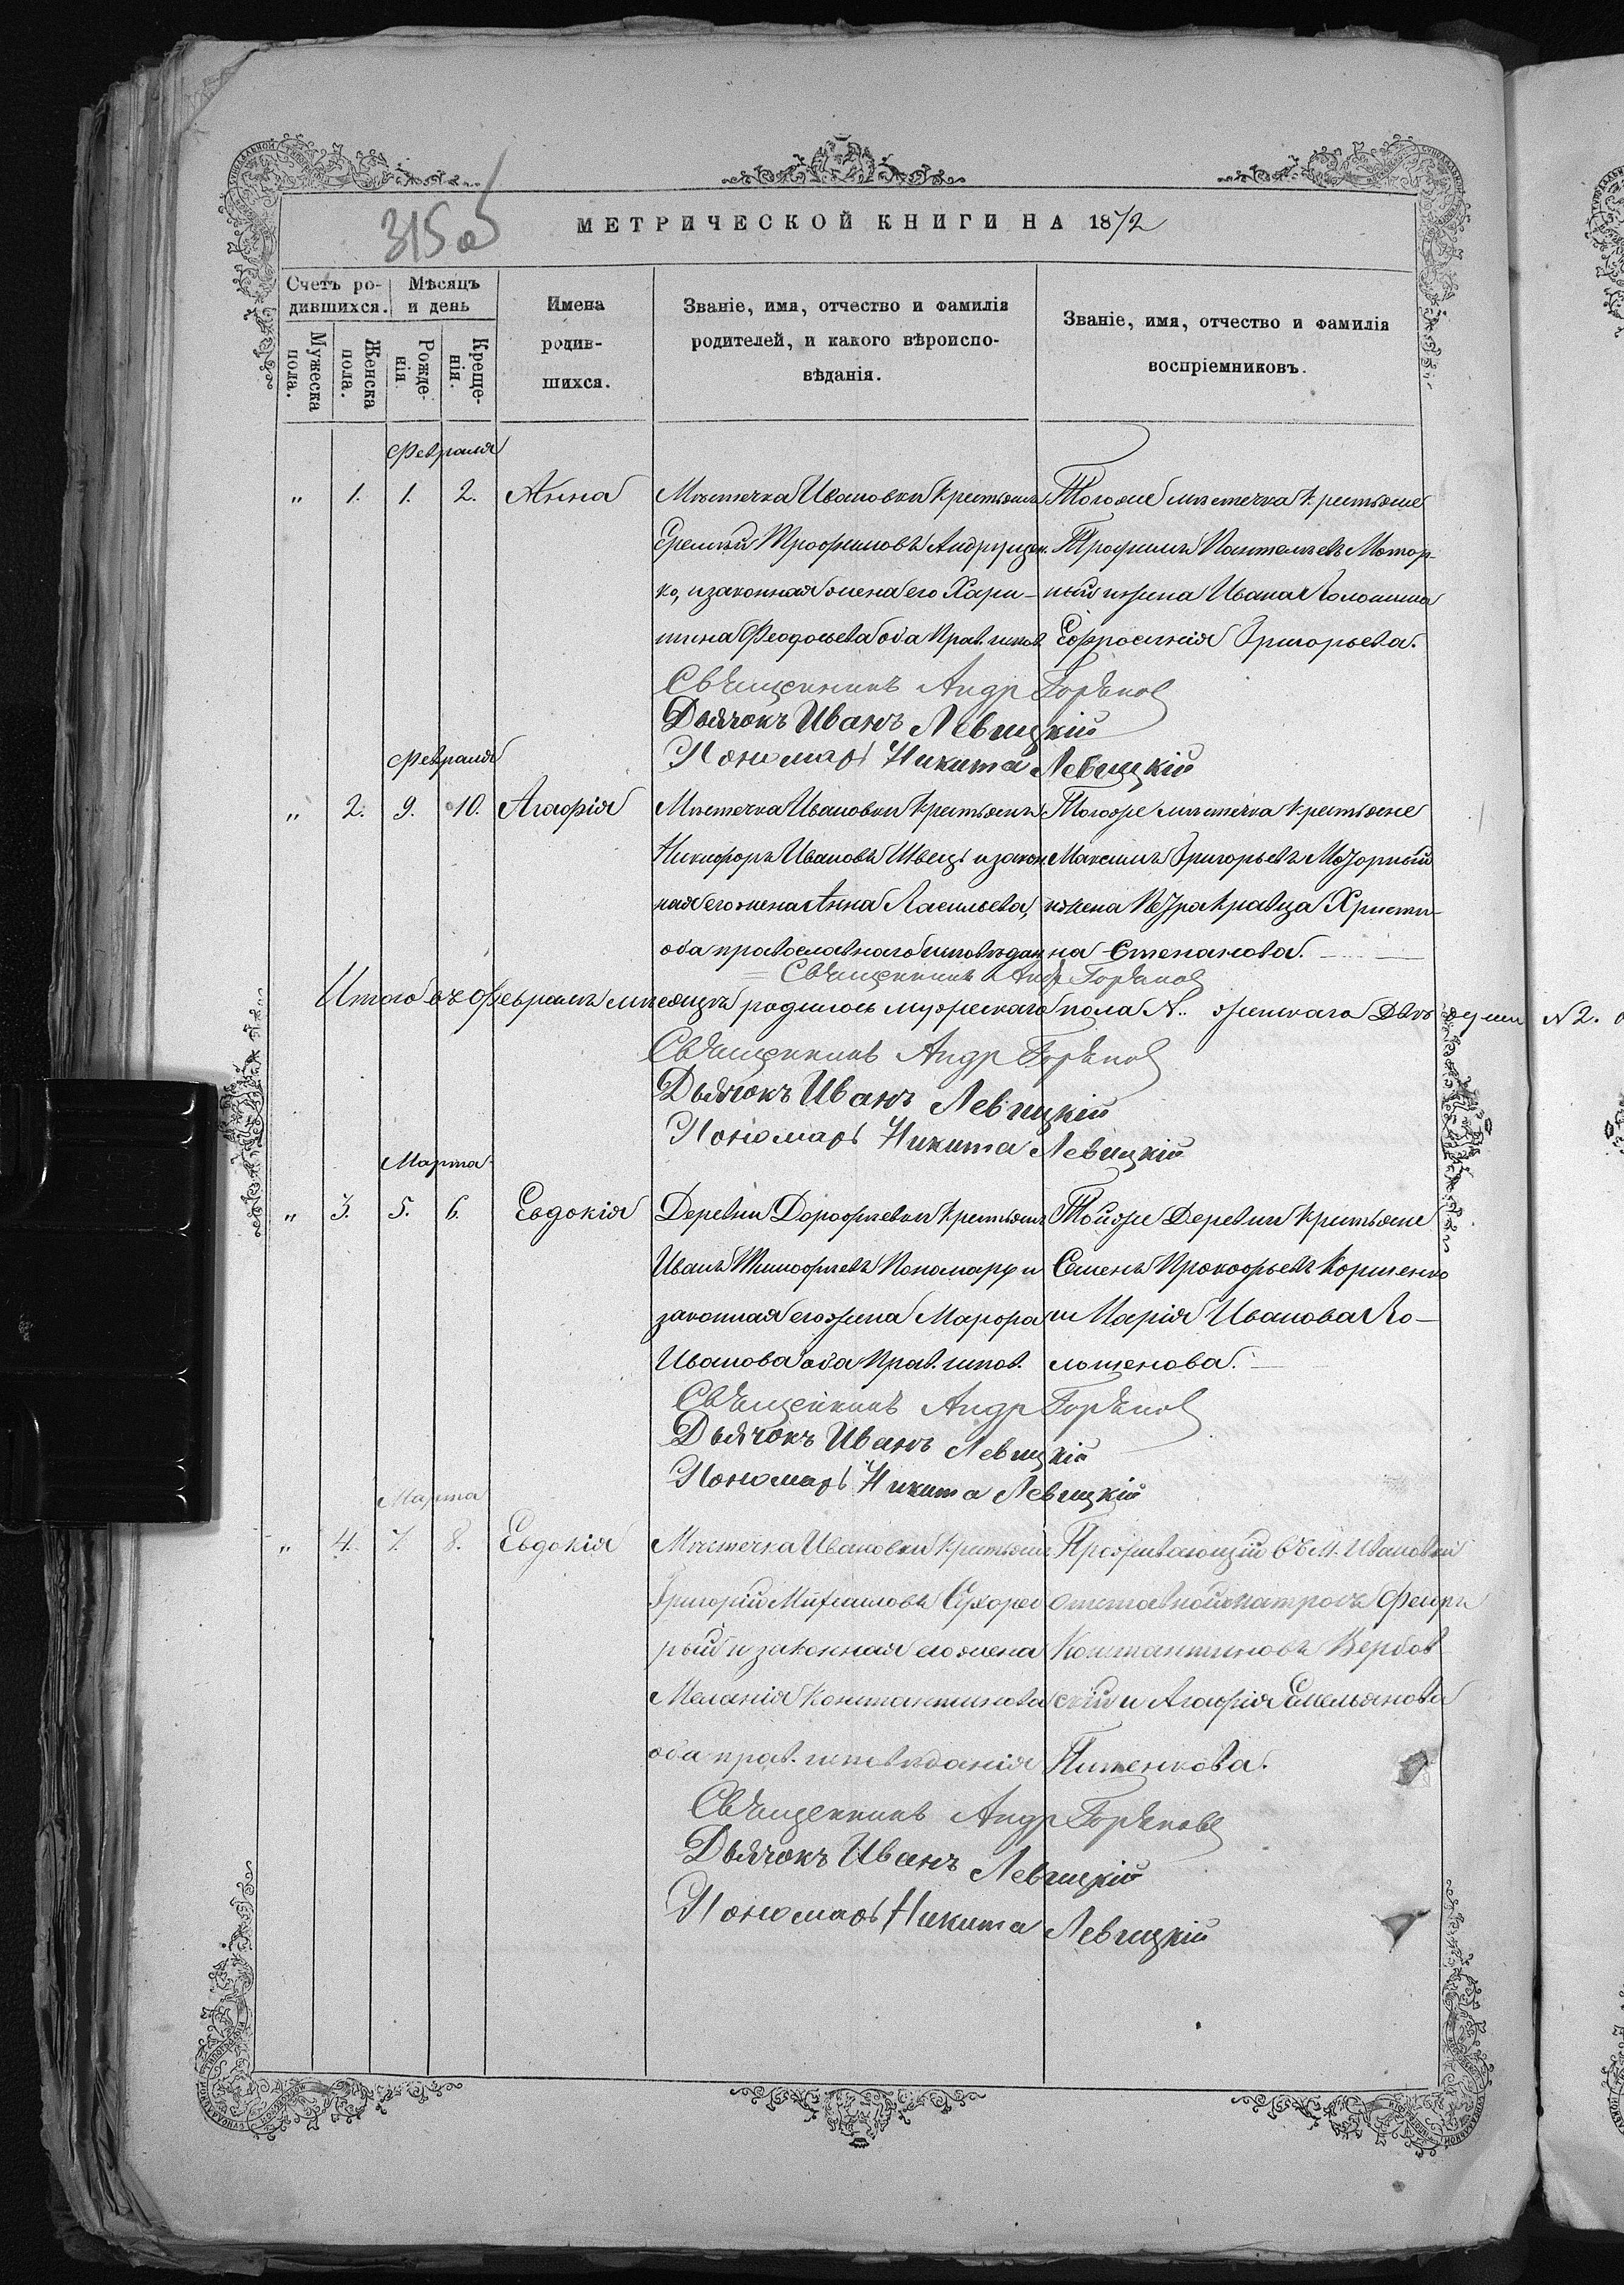 315 об
МЕТРИЧЕСКОЙ КНИГИ НА 1872
Счетъ ро-
дившихся.
Мѣсяцъ
и день
Мужеска
пола.
Женска
пола.
Рожде-
нія.
Креще-
нія.
Имена
родив-
шихся.
Званіе, имя, отчество и фамилія
родителей, и какого вѣроиспо-
вѣданія.
Званіе, имя, отчество и фамилія
воспріемниковъ.
Февраля
„ 1. 1. 2. Анна
Мѣстечка Ивановки крестьянъ
Еремѣй Трофимовъ Андрущен-
ко, и законная жена его Хари-
тина Феодосьева оба прав. испов.
Тогоже мѣстечка крестьяне
Трофимъ Пантелѣевъ Мотор-
ный и жена Ивана
Ефросинія Григорьева.
Священникъ Андр
Дьячокъ Иванъ Левицкій
Пономарь Никита Левицкій
Февраля
„ 2. 9. 10. Агафія
Мѣстечка Ивановки крестьянъ
Никифоръ Ивановъ Швецъ и закон
ная его жена Анна Васильева,
оба православнаго исповѣдан
Тогоже мѣстечка крестьяне
Максимъ Григорьевъ Моторный
и жена Петра Кравца Христи-
на Степанова.
Священникъ Андр
Итого въ Февралѣ мѣсяцѣ родилось мужескаго пола N „ женскаго двѣ души N 2.
Священникъ Андр
Дьячокъ Иванъ Левицкій
Пономарь Никита Левицкій
Марта
„ 3. 5. 6. Евдокія
Деревни Дорофѣевки крестьян
Иванъ Тимофѣевъ Пономарь и
законная его жена Марфа
Иванова оба прав. испов.
Тойже Деревни крестьяне
Семенъ Прокофьевъ
и Марія Иванова Ко-
Священникъ Андр
Дьячокъ Иванъ Левицкій
Пономарь Никита Левицкій
Марта
„ 4. 7. 8. Евдокія
Мѣстечка Ивановки крестьян
Григорій Михаиловъ
рый и законная его жена
Меланія Константинова
оба прав. исповѣданія
Проживающій въ м. Ивановкѣ
отставной
Константиновъ Вербов
скій и Агафія Емельянова
Священникъ Андр
Дьячокъ Иванъ Левицкій
Пономарь Никита Левицкій